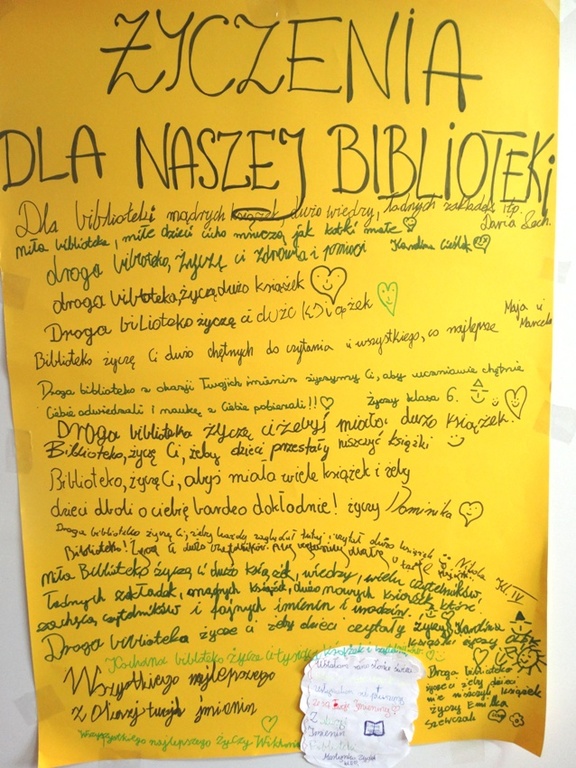 ŻYCZENIA
DLA NASZEJ BIBLIOTEKI
Dla biblioteki mądrych książek, dużo wiedzy, ładnych zakładek itp.
Daria Lech.
miła biblioteka, miłe dzieci cicho mruczą, jak kotki małe Karolina Cieślik
droga biblioteko, życzę ci zdrowia i pomocy
droga biblioteka, życzą dużo książek
Droga bilioteko życzę ci dużo książek
Maja i
Marcela
Biblioteko życzę Ci dużo chętnych do czytania i wszystkiego, co najlepsze
Droga biblioteko z okazji Twoich imienin życzymy Ci, aby uczniowie chętnie
Ciebie odwiedzali i naukę z Ciebie pobierali!! Życzy klasa 6.
Droga biblioteka życzę ci żebyś miała dużo książek.
Biblioteko, życzę Ci, żeby dzieci przestały niszczyć książki
Biblioteko, życzę Ci, abyś miała wiele książek i żeby
dzieci dbali o ciebię bardzo dokładnie! życzy Dominika
Droga biblioteko życzę Ci, żeby każdy zaglądał tutaj i czytał dużo książek
Biblioteko! Życzę Ci dużo
Nikola Kl. IV
miła Biblioteko życzę ci dużo książek, wiedzy, wielu czytelników,
ładnych zakładek, mądrych książek, dużo nowych książek, które
zachęcą czytelników i fajnych imienin i urodzin.
Droga biblioteka życze ci żeby dzieci czytały
Kochana biblioteko życzę ci tysiąc książek
Wszystkiego najlepszego
Z okazji twoich imienin
Wszystkiego najlepszego życzy Wiktoria
Z
Imienin
Biblioteka
Droga biblioteko
życzę ci żeby dzieci
nie niszczyły książek
życzy Emilka
Szewczak